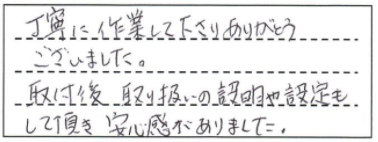 丁寧に作業して下さりありがとう
ございました。
取付後 取り扱いの説明や設定も
して頂き 安心感がありました。